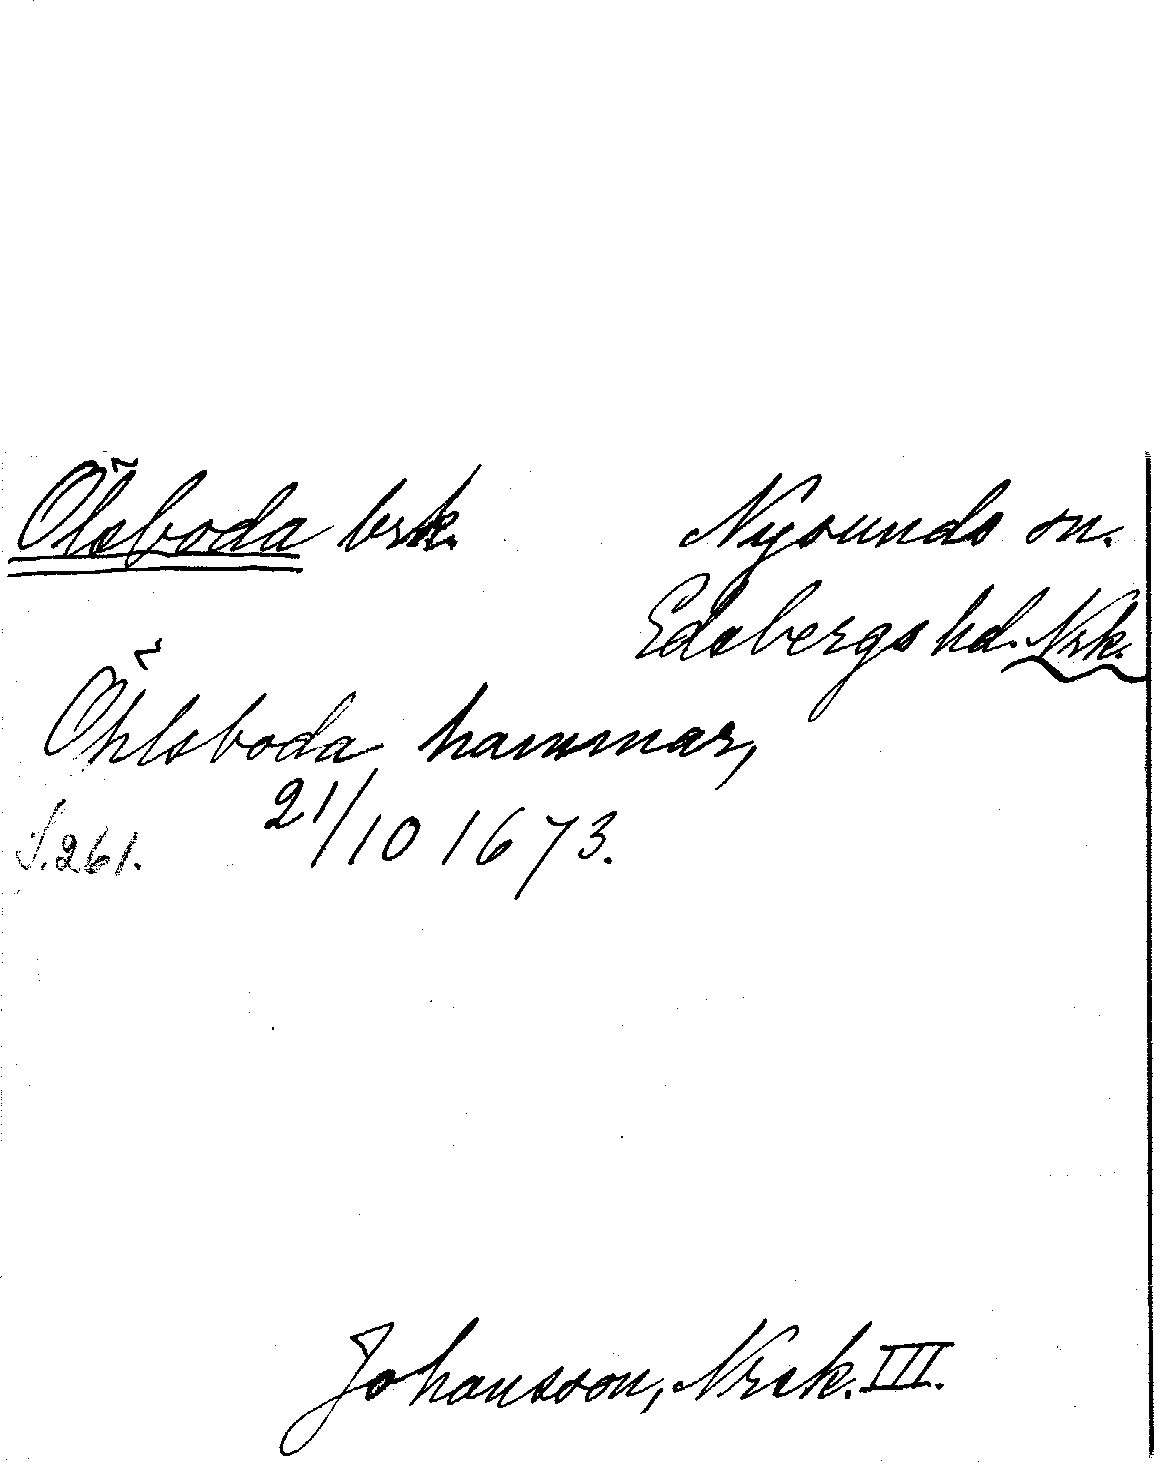 Ölsboda brk. Nysunds sn.
Edsbergs hd. Nrk.
Öhlsboda hammar,
21/10 1673.
S. 261.
Johansson, Nrck. III.